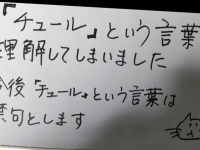 『チュール』という言葉
理解してしまいました
今後『チュール』という言葉は
禁句とします